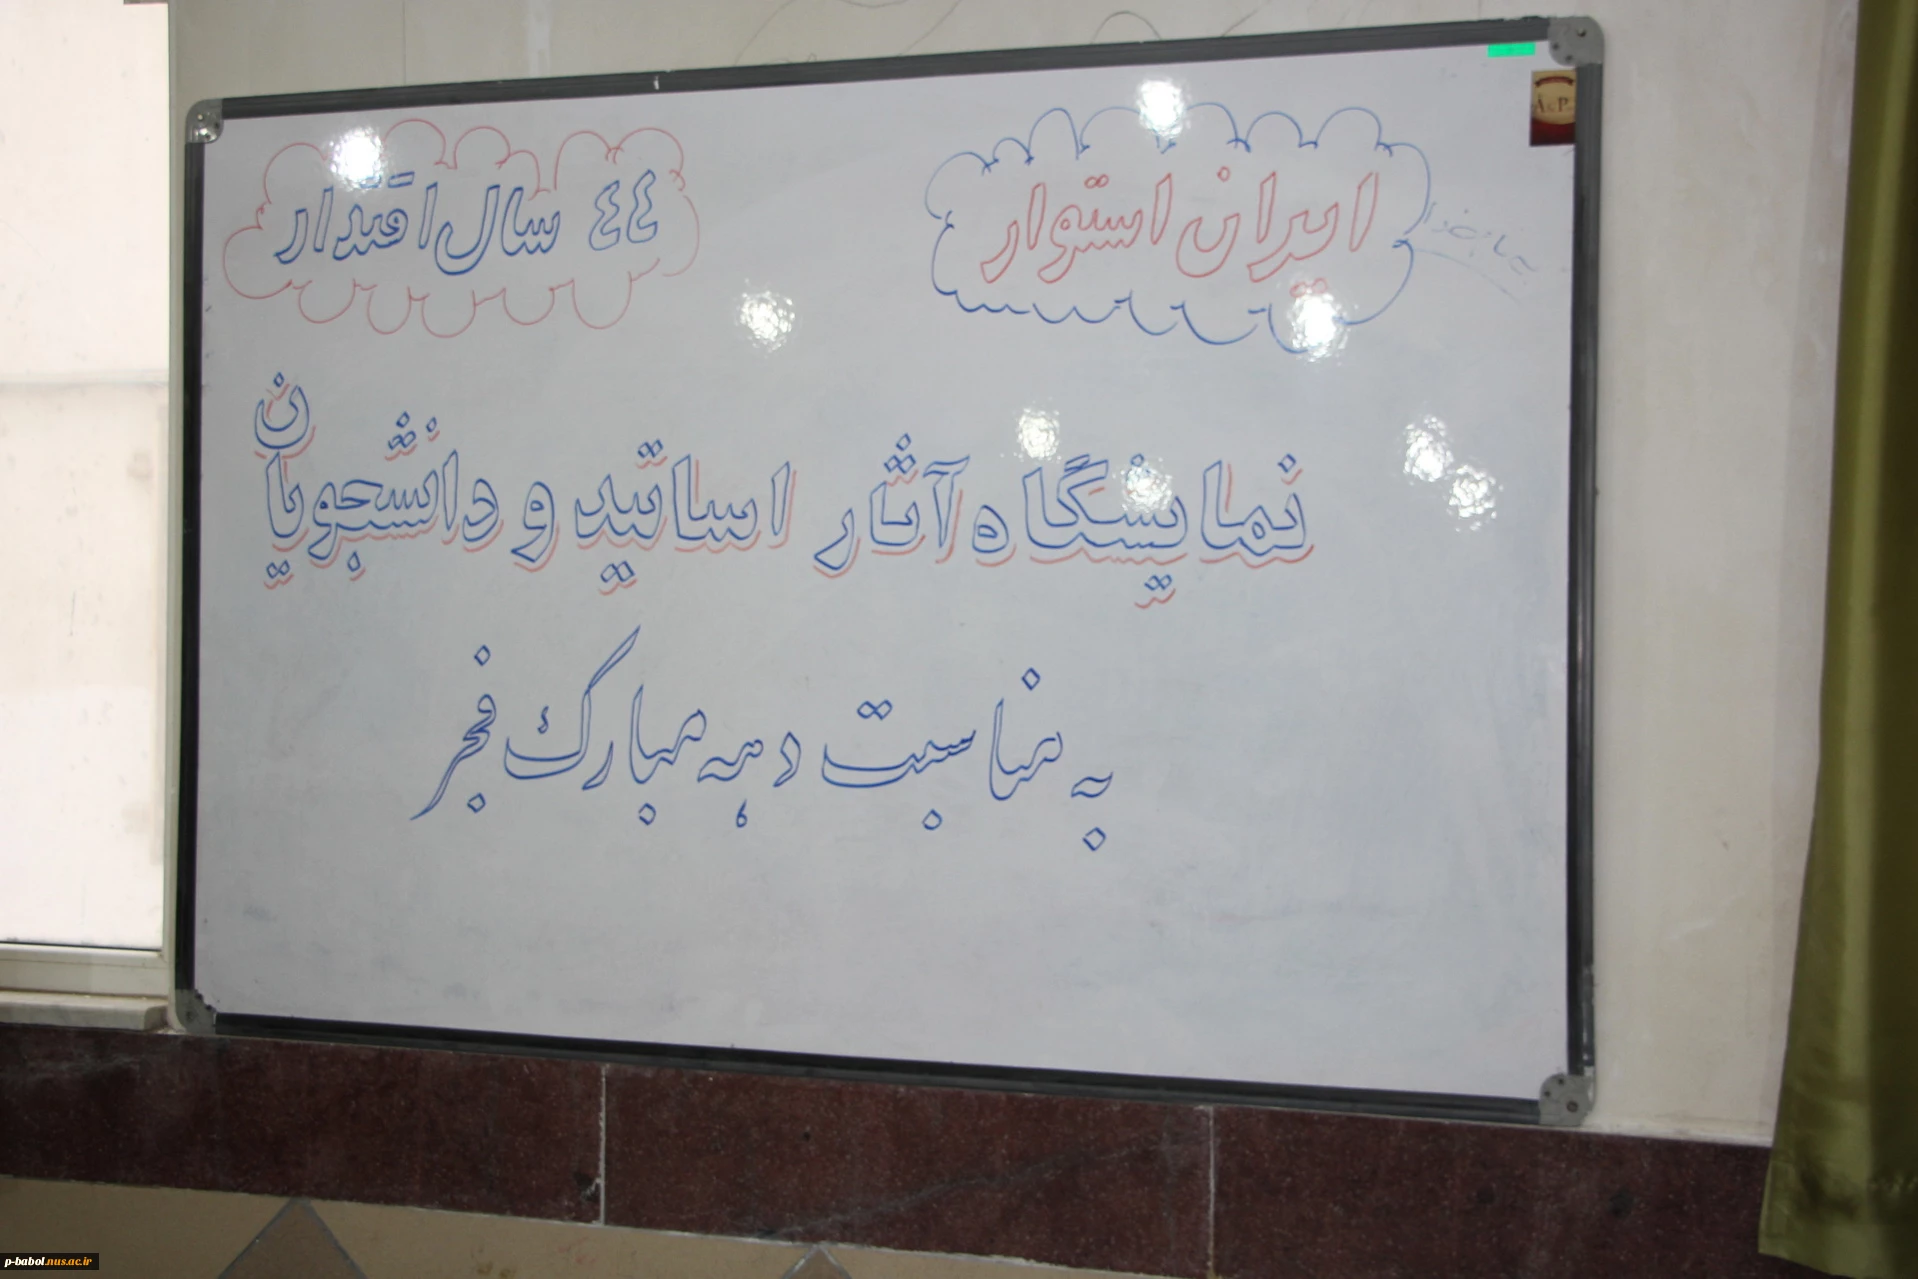 ایران استوار
٤٤ سال اقتدار
نمایشگاه آثار اساتید و دانشجویان
به مناسبت دهه مبارک فجر
p-babol.nus.ac.ir